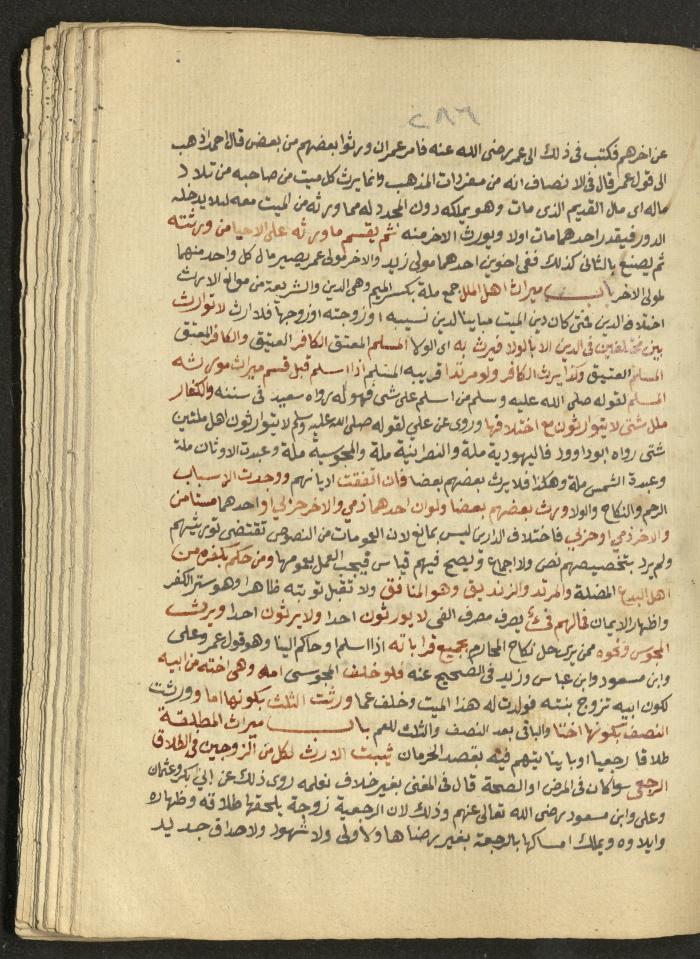 ٢٨٦
عن اخرهم فكتب في ذلك الى عمر رضى الله عنه فامر عمران ورثوا بعضهم من بعض قال احمد اذهب
الى قول عمر وقال في الانصاف انه من مفردات المذهب وانما يرث كل ميت من صاحبه من تلاد
ماله اى مال القديم الذى مات وهو يملكه دون المجدد له مما ورثه من الميت معه ليلا يدخله
الدور فيقدر احدهما مات اولا ويورث الاخر منه ثم يقسم ما ورثه على الاحيا من ورثته
ثم يصنع بالثانى كذلك ففى اخوين احدهما مولى زيد والاخر مولى عمر يصير مال كل واحد منهما
لمولى الاخر باب ميراث اهل الملل جمع ملة بكسر الميم وهى الدين والشريعة من موانع الارث
اختلاف الدين فمتى كان دين الميت مباينا لدين نسيبه او زوجته او زوجها فلا ارث لا توارث
بين مختلفين فى الدين الا بالولا فيرث به اى الولا المسلم المعتق الكافر العتيق والكافر المعتق
المسلم العتيق وكذا يرث الكافر ولو مرتدا قريبه المسلم اذا اسلم قبل قسم ميراث مورثه
المسلم لقوله صلى الله عليه وسلم من اسلم على شى فهو له رواه سعيد فى سننه والكفار
ملل شتى لا يتوارثون مع اختلافها وروى عن على لقوله صلى الله عليه وسلم لا يتوارثون اهل ملتين
شتى رواه ابوداوود فاليهودية ملة والنصرانية ملة والمجوسية ملة وعبدت الاوثان ملة
وعبدة الشمس ملة وهكذا فلا يرث بعضهم بعضا فان اتفقت اديانهم ووجدت الاسباب
الرحم والنكاح والولا ورث بعضهم بعضا ولو ان احدهما ذمي والاخر حربي او احدهما مستامن
والاخر ذمي او حربي فاختلاف الدارين ليس بمانع لان العمومات من النصوص تقتضى توريثهم
ولم يرد بتخصيصهم نص ولا اجماع ولا يصح فيهم قياس فيجب العمل بعمومها ومن حكم بكفره من
اهل البدع المضلة والمرتد والزنديق وهو المنافق ولا تقبل توبته ظاهرا وهو ستر الكفر
واظهار الايمان فمالهم فئ يصرف مصرف الفى لا يورثون احدا ولا يرثون احدا ويرث
المجوس ونحوه ممن يرى حل نكاح المحارم بجميع قراباته اذا اسلم او حاكم الينا وهو قول عمر وعلى
وابن مسعود وابن عباس وزيد فى الصحيح عنه فلو خلف المجوسى امه وهى اخته من ابيه
لكون ابيه تزوج بنته فولدت له هذا الميت وخلف عما ورثت الثلث بكونها اما وورثت
النصف بكونها اختا والباقى بعد النصف والثلث للعم باب ميراث المطلقة
طلاقا رجعيا او باينا يتهم فيه بقصد الحرمان ثبت الارث لكل من الزوجين فى الطلاق
الرجعى سوا كان فى المرض او الصحة قال فى المغنى بغير خلاف نعلمه روى ذلك عن ابى بكر وعثمان
وعلى وابن مسعود رضى الله تعالى عنهم وذلك لان الرجعية زوجة يلحقها طلاقه وظهاره
وايلاوه ويملك امساكها بالرجعة بغير رضاها ولا ولى ولا شهود ولا صداق جديد